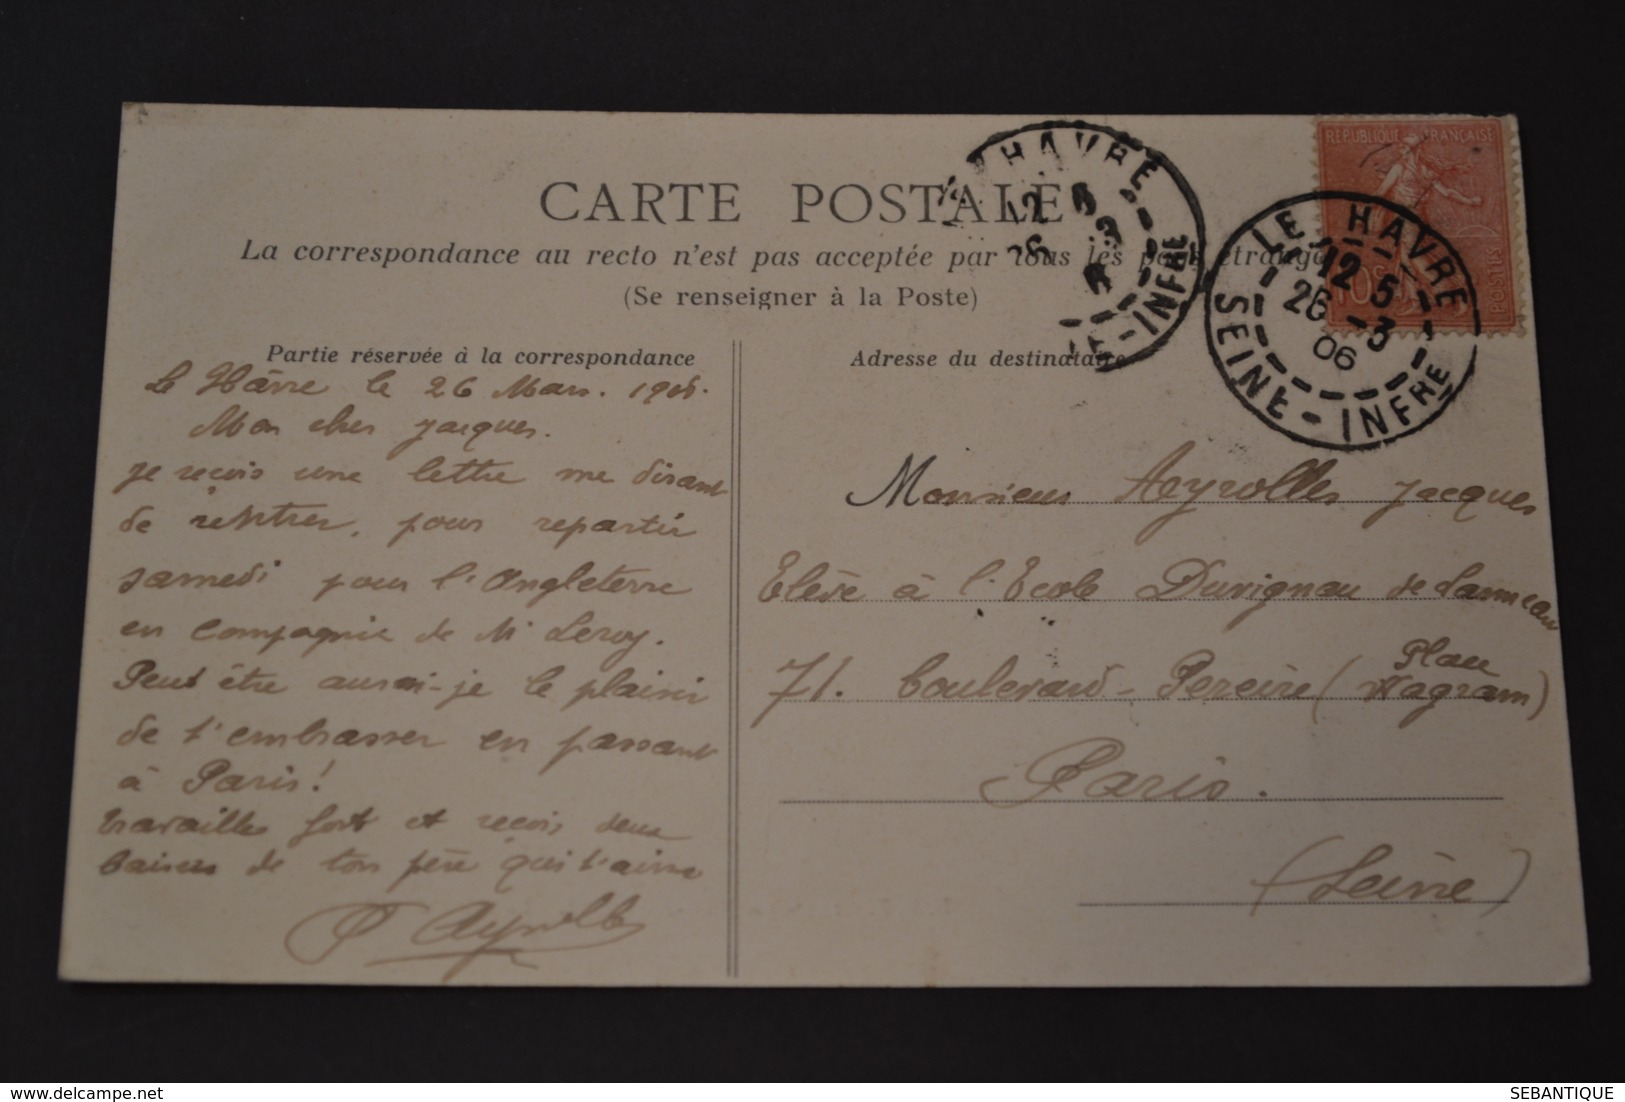 CARTE POSTALE
La correspondance au recto n'est pas acceptée par tous les pays étrang
(Se renseigner à la Poste)
Partie réservée à la correspondance
Le Hâvre le 26 Mars. 1906.
Mon cher Jacques.
je reçois une lettre me disant
de rentrer, pour repartir
samedi pour l'Angleterre
en compagnie de Mr Leroy.
Peut être aurai-je le plaisir
de t'embrasser en passant
à Paris!
travaille fort et reçois deux
baisers de ton père qui t'aime
Ayrolles
Adresse du destinataire
Monsieur Aeyrolles Jacques
Elève à l'Ecole Duvignau de Lanneau
71. boulevard Pereire (Place Wagram)
Paris.
(Seine)
REPUBLIQUE FRANÇAISE
10c
POSTES
LE HAVRE
12 5
26 -3
06
SEINE-INFRE
HAVRE
12
26
INFRE
delcampe.net
SEBANTIQUE